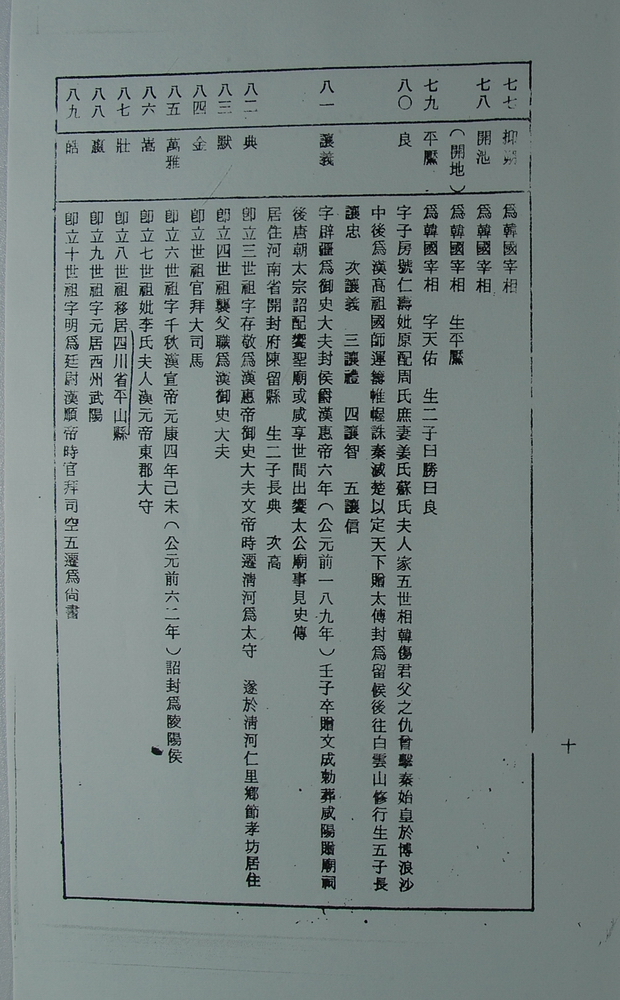 七七 抑 為韓國宰相
七八 開池 為韓國宰相
(開地) 為韓國宰相 生平
七九 平 為韓國宰相 字天佑 生二子曰勝曰良
八〇 良 字子房號仁壽妣原配周氏庶妻姜氏蘇氏夫人家五世相韓傷君父之仇曾擊秦始皇於博浪沙
中後為漢高祖國師運籌帷幄誅秦滅楚以定天下贈太傅封為留候後往白雲山修行生五子長
讓忠 次讓義 三讓禮 四讓智 五讓信
八一 讓義 字辟疆為御史大夫封侯爵漢惠帝六年(公元前一八九年)壬子卒贈文成勅葬咸陽賜廟祠
後唐朝太宗詔配饗聖廟或咸享世間出饗太公廟事見史傳
居住河南省開封府陳留縣 生二子長典 次高
八二 典 即立三世祖字存敬為漢惠帝御史大夫文帝時遷清河為太守 遂於清河仁里鄉節孝坊居住
八三 默 即立四世祖襲父職為漢御史大夫
八四 金 即立世祖官拜大司馬
八五 萬雅 即立六世祖字千秋漢宣帝元康四年己未(公元前六二年)詔封為陵陽侯
八六 嵩 即立七世祖妣李氏夫人漢元帝東郡大守
八七 壯 即立八世祖移居四川省平山縣
八八 嬴 即立九世祖字元居西州武陽
八九 皓 即立十世祖字明為廷尉漢順帝時官拜司空五遷為尚書
十